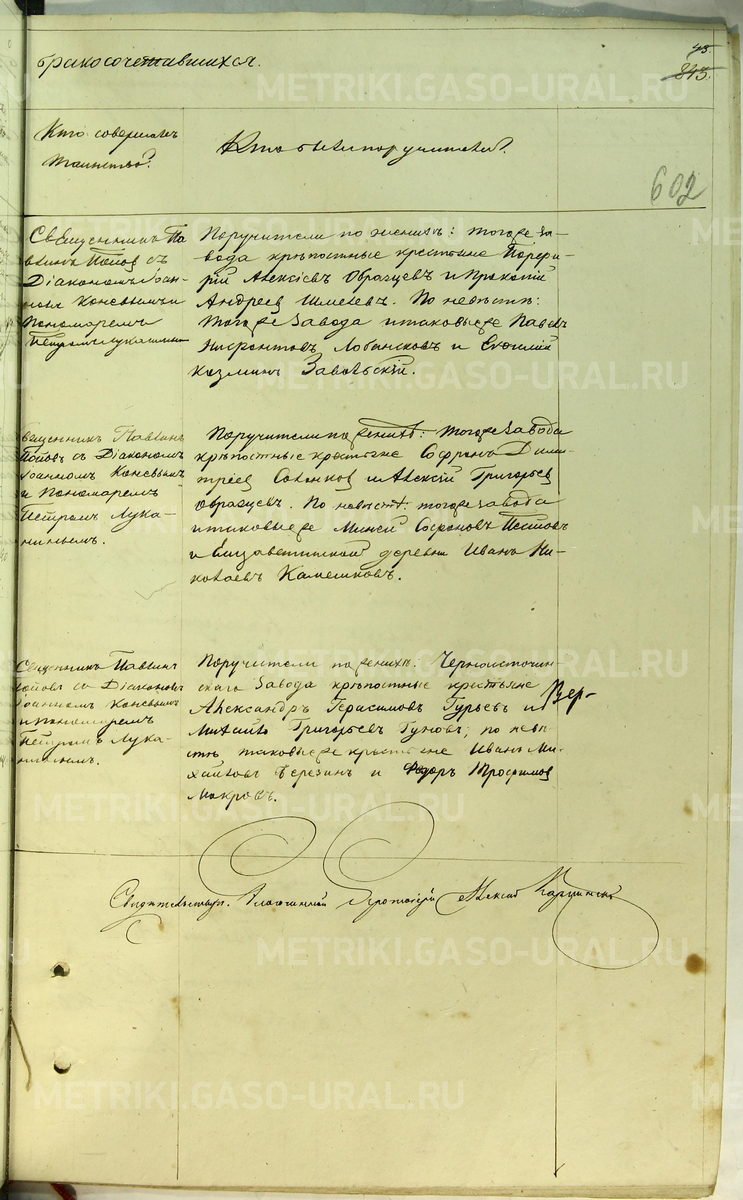 бракосочетавшихся.
43.
843.
METRIKI.GASO-URAL.RU
Кто совершалъ
таинство?
Кто были поручители?
602
Священникъ Па-
Поповъ съ
Діакономъ Іоан-
номъ Коневымъ и
Пономаремъ
Петромъ Лукани
Поручители по женихѣ: тогоже за-
вода крѣпостные крестьяне Порфи-
рій Алексѣевъ Образцевъ и Прокопій
Андреевъ Шмелевъ. По невѣстѣ:
тогоже завода и таковые же Павелъ
Лобансковъ и
Козминъ Завьльскій.
METRIKI.GASO-URAL.RU
вященникъ
Поповъ съ Діакономъ
Іоанномъ Коневымъ
и Пономаремъ
Петромъ Лука-
нинымъ.
Поручители по женихѣ: тогоже завода
крѣпостные крестьяне Софронъ Дими-
тріевъ и Алексій Григорьевъ
Образцевъ. По невѣстѣ: тогоже завода
и таковые же Софроновъ
и Елизаветинской деревни Иванъ Ни-
колаевъ Камешковъ.
METRIKI.GASO-URAL.RU
Священникъ
Поповъ съ Діакономъ
Іоанномъ Коневымъ
и пономаремъ
Петромъ Лука-
нинымъ.
Поручители по женихѣ: Черноисточин-
скаго завода крѣпостные крестьяне
Александръ Герасимовъ Гурьевъ и
Михайло Григорьевъ Гуновъ; по невѣ-
стѣ таковые же крестьяне Иванъ Ми-
хайловъ Березинъ и Ѳедоръ Трофимовъ
Мокровъ.
Вер-
METRIKI.GASO-URAL.RU
Благочинный Протоіерей Алексій Карпинскій
METRIKI.GASO-URAL.RU
METRIKI.GASO-URAL.RU